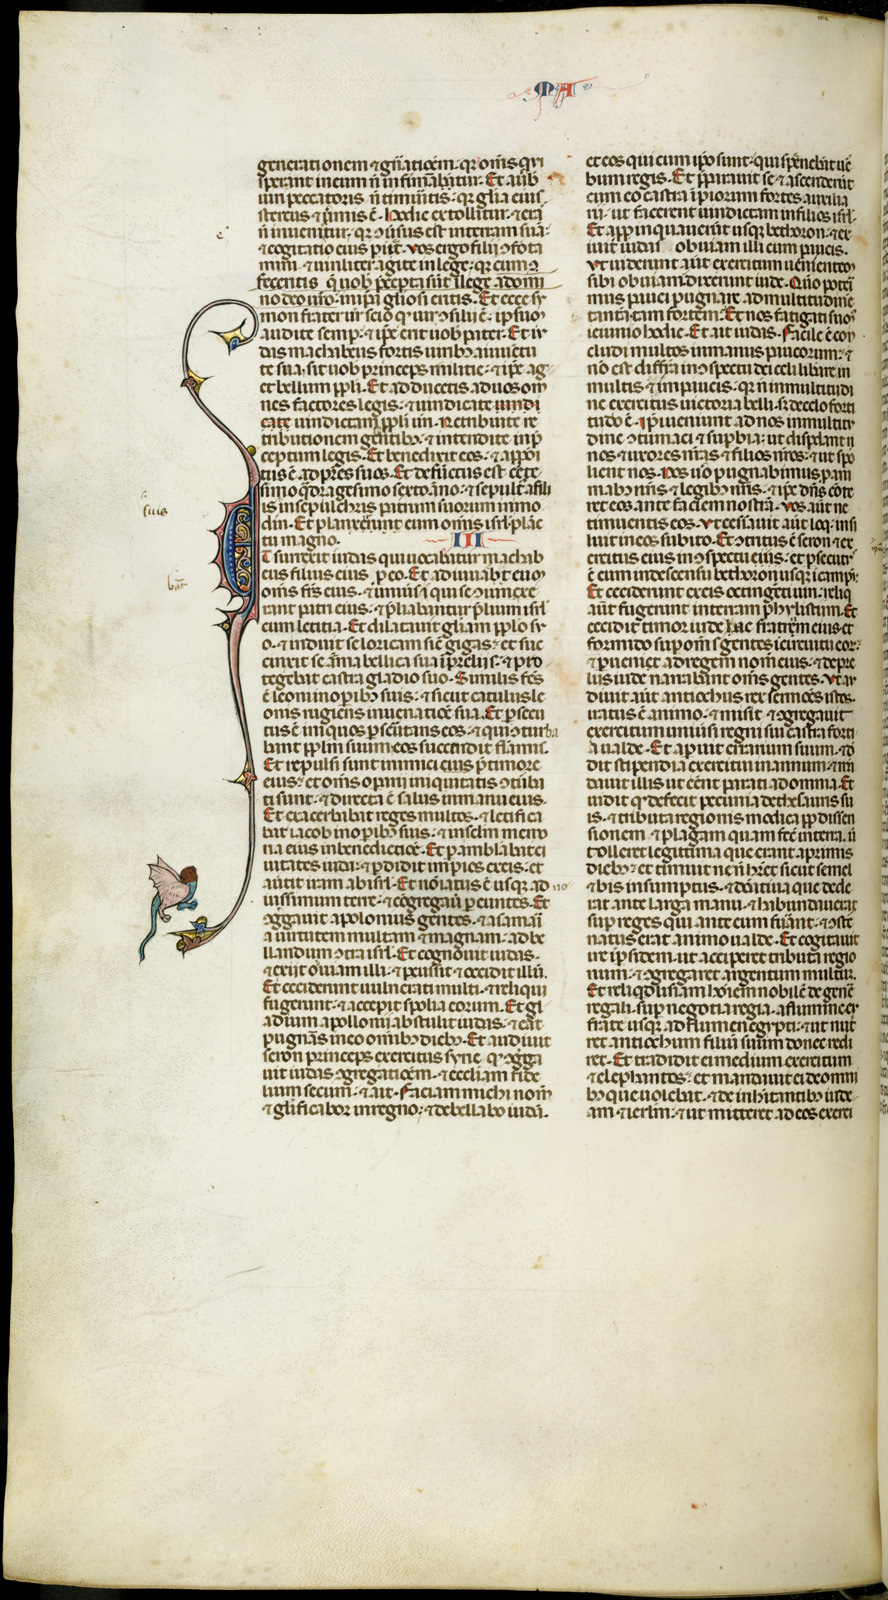 MA
generationem ⁊ gn̄aticēm· qr om̄s qui
sperant in eum n̄ infirmabūtur. Et a ūb
uiri peccatoris n̄ timūitis· qr glīa eius
stercus ⁊ ūmis ē. hodie extollitur· ⁊ cra
n̄ inuenietur· qr ɔuersus est in terram suā·
⁊ cogitatio eius p̄iit. vos ergo filii ɔforta
mini ⁊ uiriliter agite in lege· qr cum
feceritis quob p̄cepta sūt ī lege a domi
no deo uro· in ipsa gliosi eritis. Et ecce sy
mon frater ur scio q uir ɔsilii ē· ipsuꝫ
audite semp̄· ⁊ ip̄e erit uob pater. Et iu
das machabeus fortis uirib a iuuētu
te sua· sit uob princeps militie· ⁊ ip̄e ag
et bellum ppli. Et adducetis ad uos om
nes factores legis· ⁊ uindicate uindi
cate uindictam ppli ūri. Retribuite re
tributionem gentibꝫ· ⁊ intendite in p̄
ceptum legis. Et benedixit eos· ⁊ appoi
tus ē ad pr̄es suos. Et defūctus est cēte
simo qdragesimo sexto āno· ⁊ sepult a fili
is in sepulchris patrum suorum in mo
din. Et planxerunt eum om̄is isrl plāc
tu magno. III
ET surrexit iudas qui uocabatur machab
eus filius eius p̄ eo. Et adiuuabt euꝫ
om̄s frs eius· ⁊ uniusi qui se ɔiunxe
rant patri eius· ⁊ p̄liabantur p̄lium isrl
cum letitia. Et dilatauit gliam pplo su
o· ⁊ induit se loricam sic gigas· et suc
cinxit se arma bellica sua ī preliis· ⁊ pro
tegebat castra gladio suo. Similis fcs
ē leoni in opibꝫ suis· ⁊ sicut catulus le
onis rugiens in uenatiōe sua. Et p̄secu
tus ē iniquos p̄scrutans eos· ⁊ qui ɔturba
bant pplm suum· eos succendit flammis.
Et repulsi sunt inimici eius p̄ timore
eius· et om̄s opaii iniquitatis ɔturba
ti sunt· ⁊ directa ē salus in manu eius.
Et exacerbabat reges multos· ⁊ letifica
bat iacob in opibꝫ suis· ⁊ in sclm memo
ria eius in benedictiōe. Et p̄ambulabat ci
uitates iuda· ⁊ p̄didit impios ex eis· et
auertit iram ab isrl. Et noīatus ē usqꝫ ad no
uissimum terre· ⁊ cōgregauit p̄euntes. Et
ɔggauit apolonius gentes· ⁊ a samari
a uirtutem multam ⁊ magnam· ad be
llandum ɔtra isrl. Et cognouit iudas·
⁊ exiit obuiam illi· ⁊ p̄cussit ⁊ occidit illū.
Et ceciderunt uulnerati multi· ⁊ reliqui
fugerunt· ⁊ accepit spolia eorum. Et gl
adium apollonii abstulit iudas· ⁊ erat
pugnās in eo omibꝫ diebꝫ. Et audiuit
seron princeps exercitus syrie q ɔgga
uit iudas ɔgregatiōem· ⁊ eccliam fide
lium secum· ⁊ ait. Faciam michi nom̄
⁊ glificabor in regno· ⁊ debellabo iudā·
et eos qui cum ip̄o sunt· qui sp̄nebāt uē
bum regis. Et p̄parauit se· ⁊ ascenderūt
cum eo castra īpiorum fortes auxilia
rii· ut facerent uindictam in filios isrl·
Et app̄inquauerūt usqꝫ bethoron· ⁊ ex
iuit iudas obuiam illi cum paucis.
Vt uiderunt aūt exercitum uenienteꝫ
sibi obuiam· dixerunt iude. Quo poteri
mus pauci pugnare ad multitudinē
tantā tam fortem· Et nos fatigati suꝫ
ieiunio hodie. Et ait iudas. Facile ē con
cludi multos in manus paucorum· ⁊
nō est differētia in ɔspectu dei celi lib̄are in
multis ⁊ in paucis· qr n̄ in multitudi
ne exercitus uictoria belli· sꝫ de celo forti
tudo ē. Ipi ueniunt ad nos in multitu
dine ɔtumaci ⁊ supbia· ut disp̄dant n
nos ⁊ uxores nr̄as ⁊ filios nr̄os· ⁊ ut spo
lient nos. Nos u̾o pugnabimus p̄ ani
mabꝫ nr̄is ⁊ legibꝫ nr̄is· ⁊ ip̄e dn̄s cōte
ret eos ante faciem nostrā. Vos aūt ne
timueritis eos. Vt cessauit aūt loqi· insi
luit in eos subito. Et ɔtritus ē seron ⁊ ex
ercitus eius in ɔspectu eius· et p̄secutꝰ
ē eum in descensu bethoron usqꝫ ī campū·
Et ceciderunt ex eis octingenti uiri· reliqi
aūt fugerunt in terram phylistim. Et
cecidit timor iude hac fratrum eius· et
formido sup om̄s gentes ī circuitu eor·
⁊ p̄uenit ad regem nom̄ eius· ⁊ de pre
liis iude narrabant om̄s gentes. Vt au
diuit aūt antiochus rex sermōes istos·
iratus ē animo· ⁊ misit ⁊ ɔgregauit
exercitum uniūsi regni sui castra forti
a ualde. Et ap̄uit erarium suum· ⁊ d
dit stipendia exercitui in annum· ⁊ mā
dauit illis ut eēnt parati ad omnia. Et
uidit q defecit pecunia de thesauris su
is· ⁊ tributa regionis modica pp dissen
sionem ⁊ plagam quam fec̄ in terra· ū
tolleret legittima que erant a primis
diebꝫ· et timuit ne n̄ hret sicut semel
⁊ bis in sumptus ⁊ donatiua que dede
rat ante larga manu· ⁊ habundauerat
sup reges qui ante eum fūant· ⁊ ɔster
natus erat animo ualde. Et cogitauit
ire īpsidem· ut acciperet tributa regio
num· ⁊ ɔgregaret argentum multum.
Et reliqd lisiam hoiem nobilē de genē
regali· sup negotia regia· a flumine eu
frate usqꝫ ad flumen egypti· ⁊ ut nut
ret antiochum filiū suum donec redi
ret. Et tradidit ei medium exercitum
⁊ elephantos· et mandauit ei de omni
bꝫ que uolebat· ⁊ de inhitantibꝫ iude
am ⁊ ierlm· ⁊ ut mitteret ad eos exerci